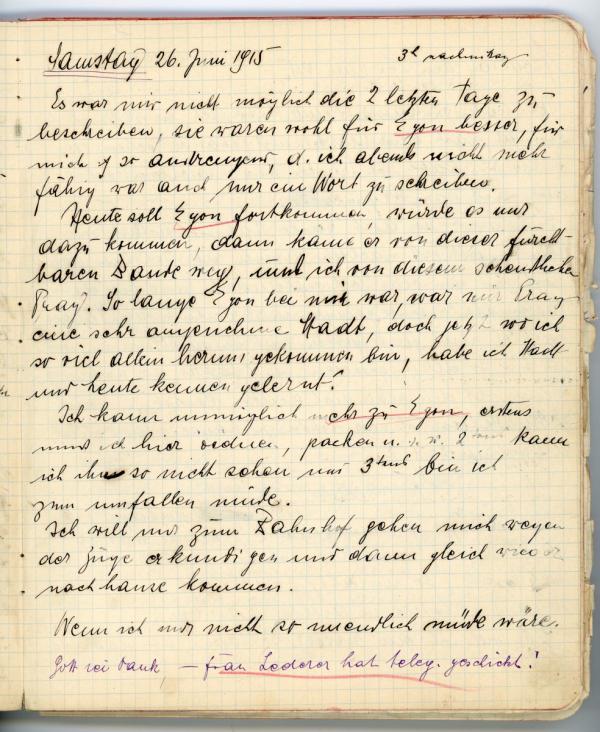 Samstag 26. Juni 1915 3h nachmittag
Es war mir nicht möglich die 2 letzten Tage zu
beschreiben, sie waren wohl für Egon besser, für
mich so anstrengend, d. ich abends nicht mehr
fähig war auch nur ein Wort zu schreiben.
Heute soll Egon fortkommen, würde es nur
dazu kommen, dann käme er von dieser furcht-
baren Bande weg, und ich von diesem scheuslichen
Prag. So lange Egon bei mir war, war mir Prag
eine sehr angenehme Stadt, doch jetzt wo ich
so viel allein herum gekommen bin, habe ich Stadt
und heute kennen gelernt!
Ich kann unmöglich mehr zu Egon, erstens
muss ich hier ordnen, packen u. s. w. 2tens kann
ich ihn so nicht sehen und 3tens bin ich
zum umfallen müde.
Ich will nur zum Bahnhof gehen mich wegen
der Züge erkundigen und dann gleich wieder
nachhause kommen.
Wenn ich nur nicht so unendlich müde wäre.
Gott sei dank, – frau Lederer hat teleg. geschickt!